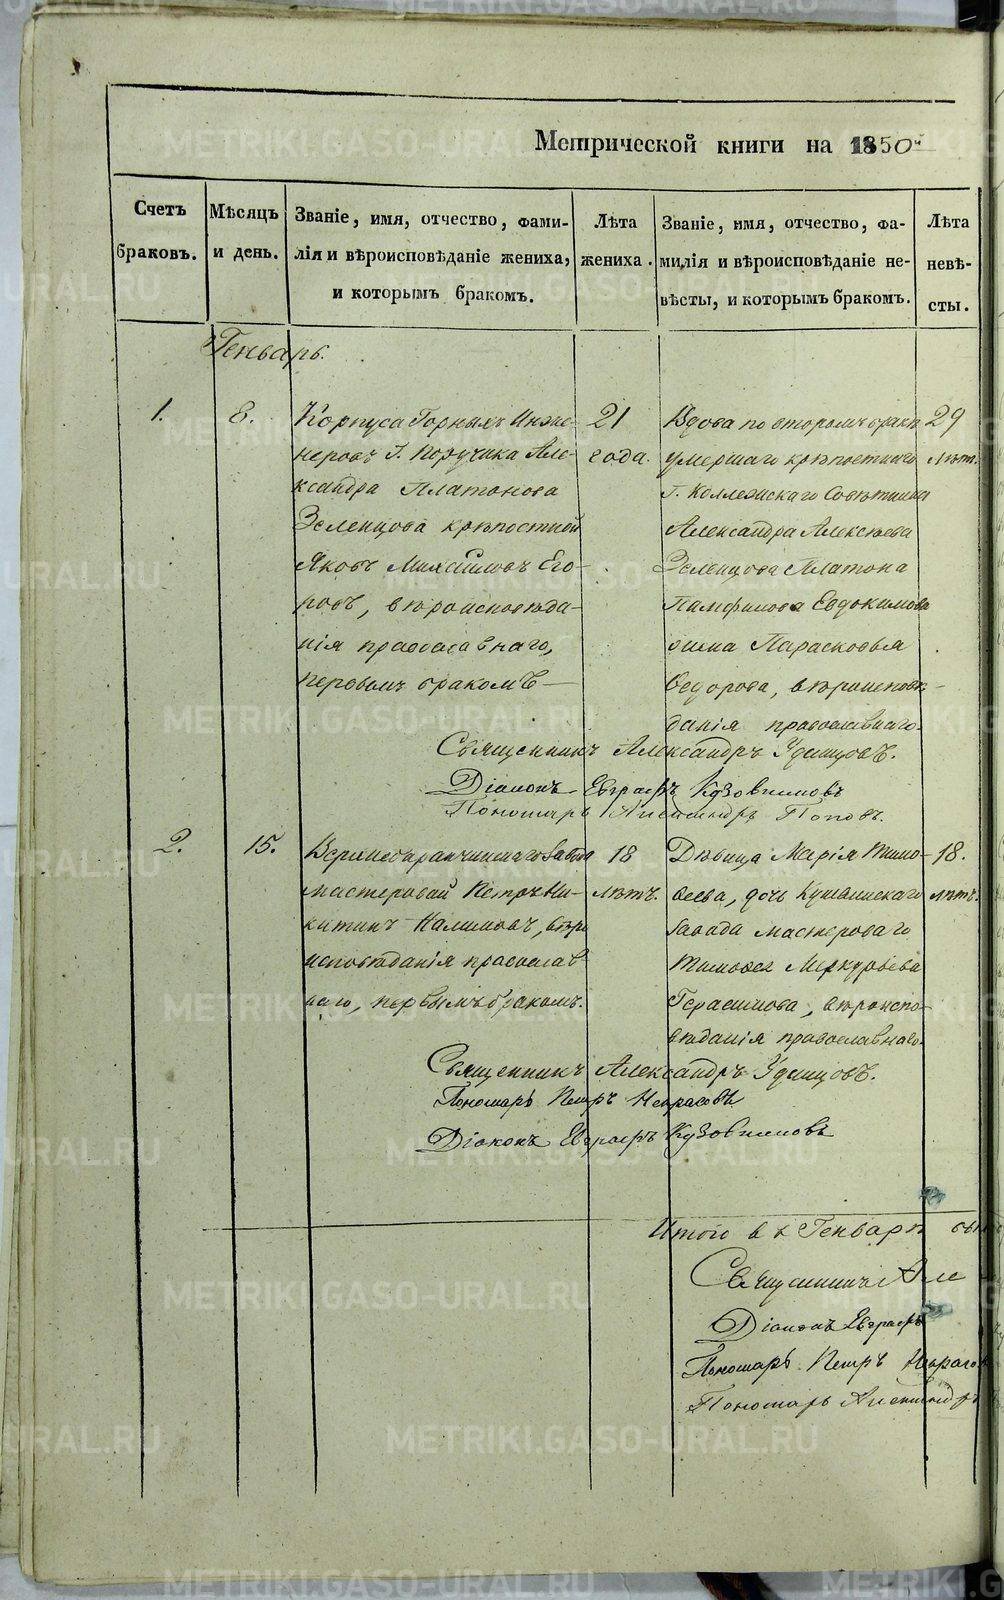 Метрической книги на 1850й
Счетъ браковъ.
Мѣсяцъ и день.
Званіе, имя, отчество, фами-
лія и вѣроисповѣданіе жениха,
и которымъ бракомъ.
Лѣта
жениха.
Званіе, имя, отчество, фа-
милія и вѣроисповѣданіе не-
вѣсты, и которымъ бракомъ.
Лѣта
невѣ-
сты.
Генварь.
1.
8.
Корпуса Горныхъ Инже-
неровъ Г. Поручика Але-
ксандра Платонова
Зеленцова крѣпостной
Яковъ Михайловъ Его-
ровъ, вѣроисповѣда-
нія православнаго,
первымъ бракомъ
21
года.
Вдова по второмъ бракѣ
умершаго крѣпостнаго
Г. Коллежскаго Совѣтника
Александра Алексѣева
Зеленцова Платона
Памфилова Евдокимова
жена Парасковья
Ѳедорова, вѣроисповѣ-
данія православнаго.
29
лѣтъ.
Священникъ Александръ Удинцовъ.
Діаконъ Евграфъ Кузовниковъ
Пономарь Александръ Поповъ.
2.
15.
Верхнебаранчинскаго завода
мастеровой Петръ Ни-
китинъ Калининъ, вѣро
исповѣданія православ
наго, первымъ бракомъ.
18
лѣтъ.
Дѣвица Марія Тимо-
ѳеева, дочь Кушвинскаго
завода мастероваго
Тимоѳея Меркурьева
Герасимова, вѣроиспо-
вѣданія православнаго.
18.
лѣтъ.
Священникъ Александръ Удинцовъ.
Пономарь Петръ Некрасовъ
Діаконъ Евграфъ Кузовниковъ
Итого въ Генварѣ
Священникъ Але
Діаконъ Евграфъ
Пономарь Петръ Некрасов
Пономарь Александръ
METRIKI.GASO-URAL.RU